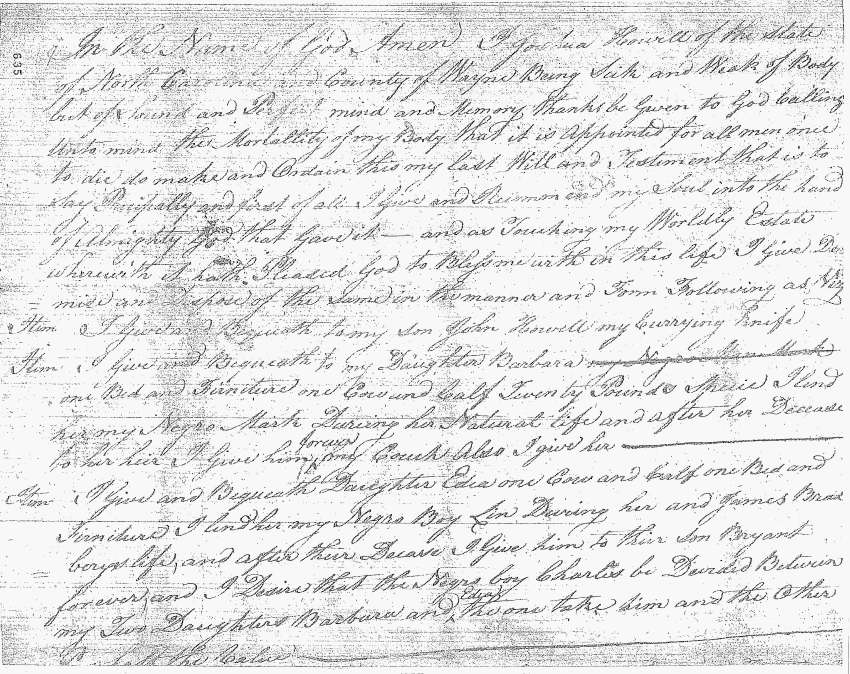 635
In the Name of God Amen I Joshua Howell of the State
of North Carolina and County of Wayne Being Sick and Weak of Body
but of Sound and Perfect mind and Memory thanks be Given to God Calling
unto mind the Mortallity of my Body that it is Appointed for all men once
to die do make and Ordain this my last Will and Testiment that is to
say Principally and first of all I Give and Recommend my Soul into the hand
of Almighty God that Gave it — and as Touching my Worldly Estate
wherewith it hath Pleased God to Bless me with in this life I Give De
mise and Dispose of the Same in the manner and Form Following as Viz
Itim I Give and Bequeath to my son John Howell my Currying Knife
Itim I Give and Bequeath to my Daughter Barbara my Negro Man Mark
one Bed and Firniture one Cow and Calf Twenty Pounds Specie I lend
her my Negro Mark During her Natural life and after her Decease
to her heir I Give him forever my Couch Also I give her
Itim I Give and Bequeath Daughter Edea one Cow and Calf one Bed and
Firniture I lend her my Negro Boy Lin During her and James Bras
berys life, and after their Decase I Give him to their Son Bryant
forever, and I Desire that the Negro boy Charles be Devided Between
my Two Daughters Barbara and Edea the one take him and the Other
half the Value